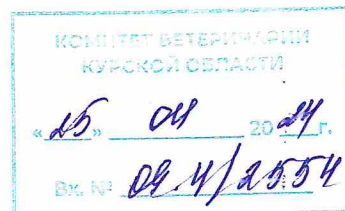 КОМИТЕТ ВЕТЕРИНАРИИ
КУРСКОЙ ОБЛАСТИ
«25» 04 2024г.
Вх. № 09.4/2554